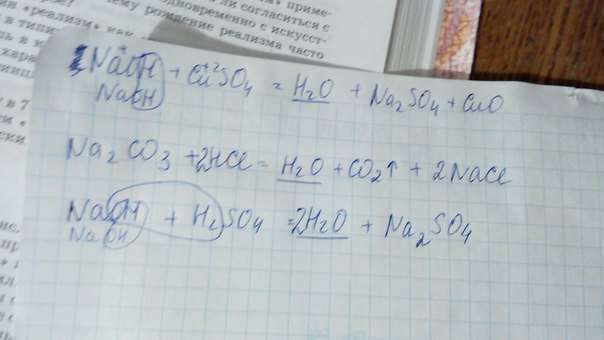 ия «реализм» приме-
ли согласиться с
одновременно с искусст-
му рождение реализма часто
NaOH + Cu⁺²SO₄ = H₂O + Na₂SO₄ + CuO
NaOH
Na₂CO₃ + 2HCl = H₂O + CO₂↑ + 2NaCl
NaOH + H₂SO₄ = 2H₂O + Na₂SO₄
NaOH